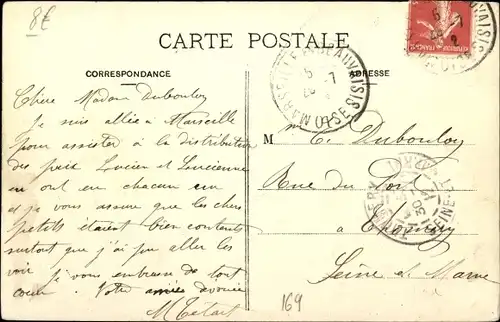 8€
CARTE POSTALE
CORRESPONDANCE
ADRESSE
MARSEILLE-EN-BEAUVAISIS
OISE
Chère Madame Dubouloy
Je suis allée à Marseille
pour assister à la distribution
des prix Lucien et Lucienne
en ont eu chacun un
et je vous assure que les chers
petits étaient bien contents
surtout que j'ai pu aller les
voir
Je vous embrasse de tout
cœur. Votre amie dévouée
M Tétart
M me C. Dubouloy
Rue du Pont
à Thomery
Seine et Marne
169